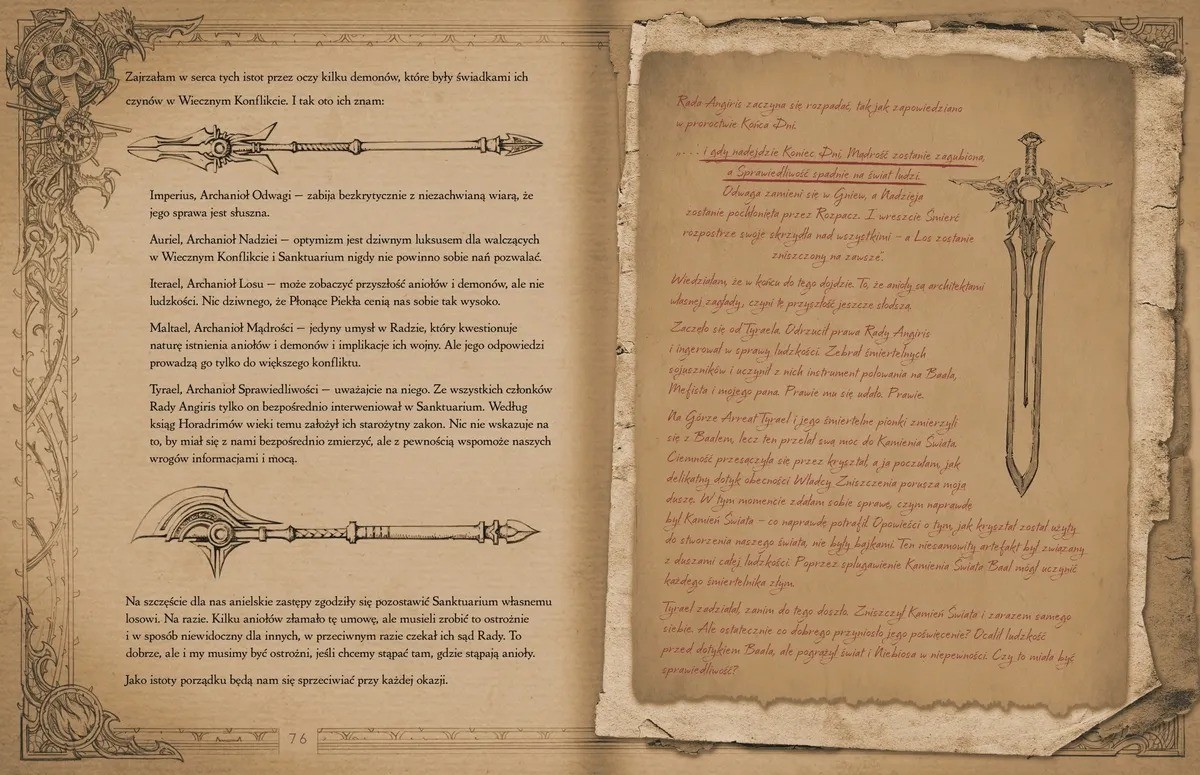 Zajrzałam w serca tych istot przez oczy kilku demonów, które były świadkami ich
czynów w Wiecznym Konflikcie. I tak oto ich znam:
Imperius, Archanioł Odwagi — zabija bezkrytycznie z niezachwianą wiarą, że
jego sprawa jest słuszna.
Auriel, Archanioł Nadziei — optymizm jest dziwnym luksusem dla walczących
w Wiecznym Konflikcie i Sanktuarium nigdy nie powinno sobie nań pozwalać.
Iterael, Archanioł Losu — może zobaczyć przyszłość aniołów i demonów, ale nie
ludzkości. Nic dziwnego, że Płonące Piekła cenią nas sobie tak wysoko.
Maltael, Archanioł Mądrości — jedyny umysł w Radzie, który kwestionuje
naturę istnienia aniołów i demonów i implikacje ich wojny. Ale jego odpowiedzi
prowadzą go tylko do większego konfliktu.
Tyrael, Archanioł Sprawiedliwości — uważajcie na niego. Ze wszystkich członków
Rady Angiris tylko on bezpośrednio interweniował w Sanktuarium. Według
ksiąg Horadrimów wieki temu założył ich starożytny zakon. Nic nie wskazuje na
to, by miał się z nami bezpośrednio zmierzyć, ale z pewnością wspomoże naszych
wrogów informacjami i mocą.
Na szczęście dla nas anielskie zastępy zgodziły się pozostawić Sanktuarium własnemu
losowi. Na razie. Kilku aniołów złamało tę umowę, ale musieli zrobić to ostrożnie
i w sposób niewidoczny dla innych, w przeciwnym razie czekał ich sąd Rady. To
dobrze, ale i my musimy być ostrożni, jeśli chcemy stąpać tam, gdzie stąpają anioły.
Jako istoty porządku będą nam się sprzeciwiać przy każdej okazji.
76
Rada Angiris zaczyna się rozpadać, tak jak zapowiedziano
w proroctwie Końca Dni.
„. . . i gdy nadejdzie Koniec Dni, Mądrość zostanie zagubiona,
a Sprawiedliwość spadnie na świat ludzi.
Odwaga zamieni się w Gniew, a Nadzieja
zostanie pochłonięta przez Rozpacz. I wreszcie Śmierć
rozpostrze swoje skrzydła nad wszystkimi – a Los zostanie
zniszczony na zawsze".
Wiedziałam, że w końcu do tego dojdzie. To, że anioły są architektami
własnej zagłady, czyni tę przyszłość jeszcze słodszą.
Zaczęło się od Tyraela. Odrzucił prawa Rady Angiris
i ingerował w sprawy ludzkości. Zebrał śmiertelnych
sojuszników i uczynił z nich instrument polowania na Baala,
Mefista i mojego pana. Prawie mu się udało. Prawie.
Na Górze Arreat Tyrael i jego śmiertelne pionki zmierzyli
się z Baalem, lecz ten przelał swą moc do Kamienia Świata.
Ciemność przesączyła się przez kryształ, a ja poczułam, jak
delikatny dotyk obecności Władcy Zniszczenia porusza moją
duszę. W tym momencie zdałam sobie sprawę, czym naprawdę
był Kamień Świata – co naprawdę potrafił. Opowieści o tym, jak kryształ został użyty
do stworzenia naszego świata, nie były bajkami. Ten niesamowity artefakt był związany
z duszami całej ludzkości. Poprzez splugawienie Kamienia Świata Baal mógł uczynić
każdego śmiertelnika złym.
Tyrael zadziałał, zanim do tego doszło. Zniszczył Kamień Świata i zarazem samego
siebie. Ale ostatecznie co dobrego przyniosło jego poświęcenie? Ocalił ludzkość
przed dotykiem Baala, ale pogrążył świat i Niebiosa w niepewności. Czy to miała być
sprawiedliwość?